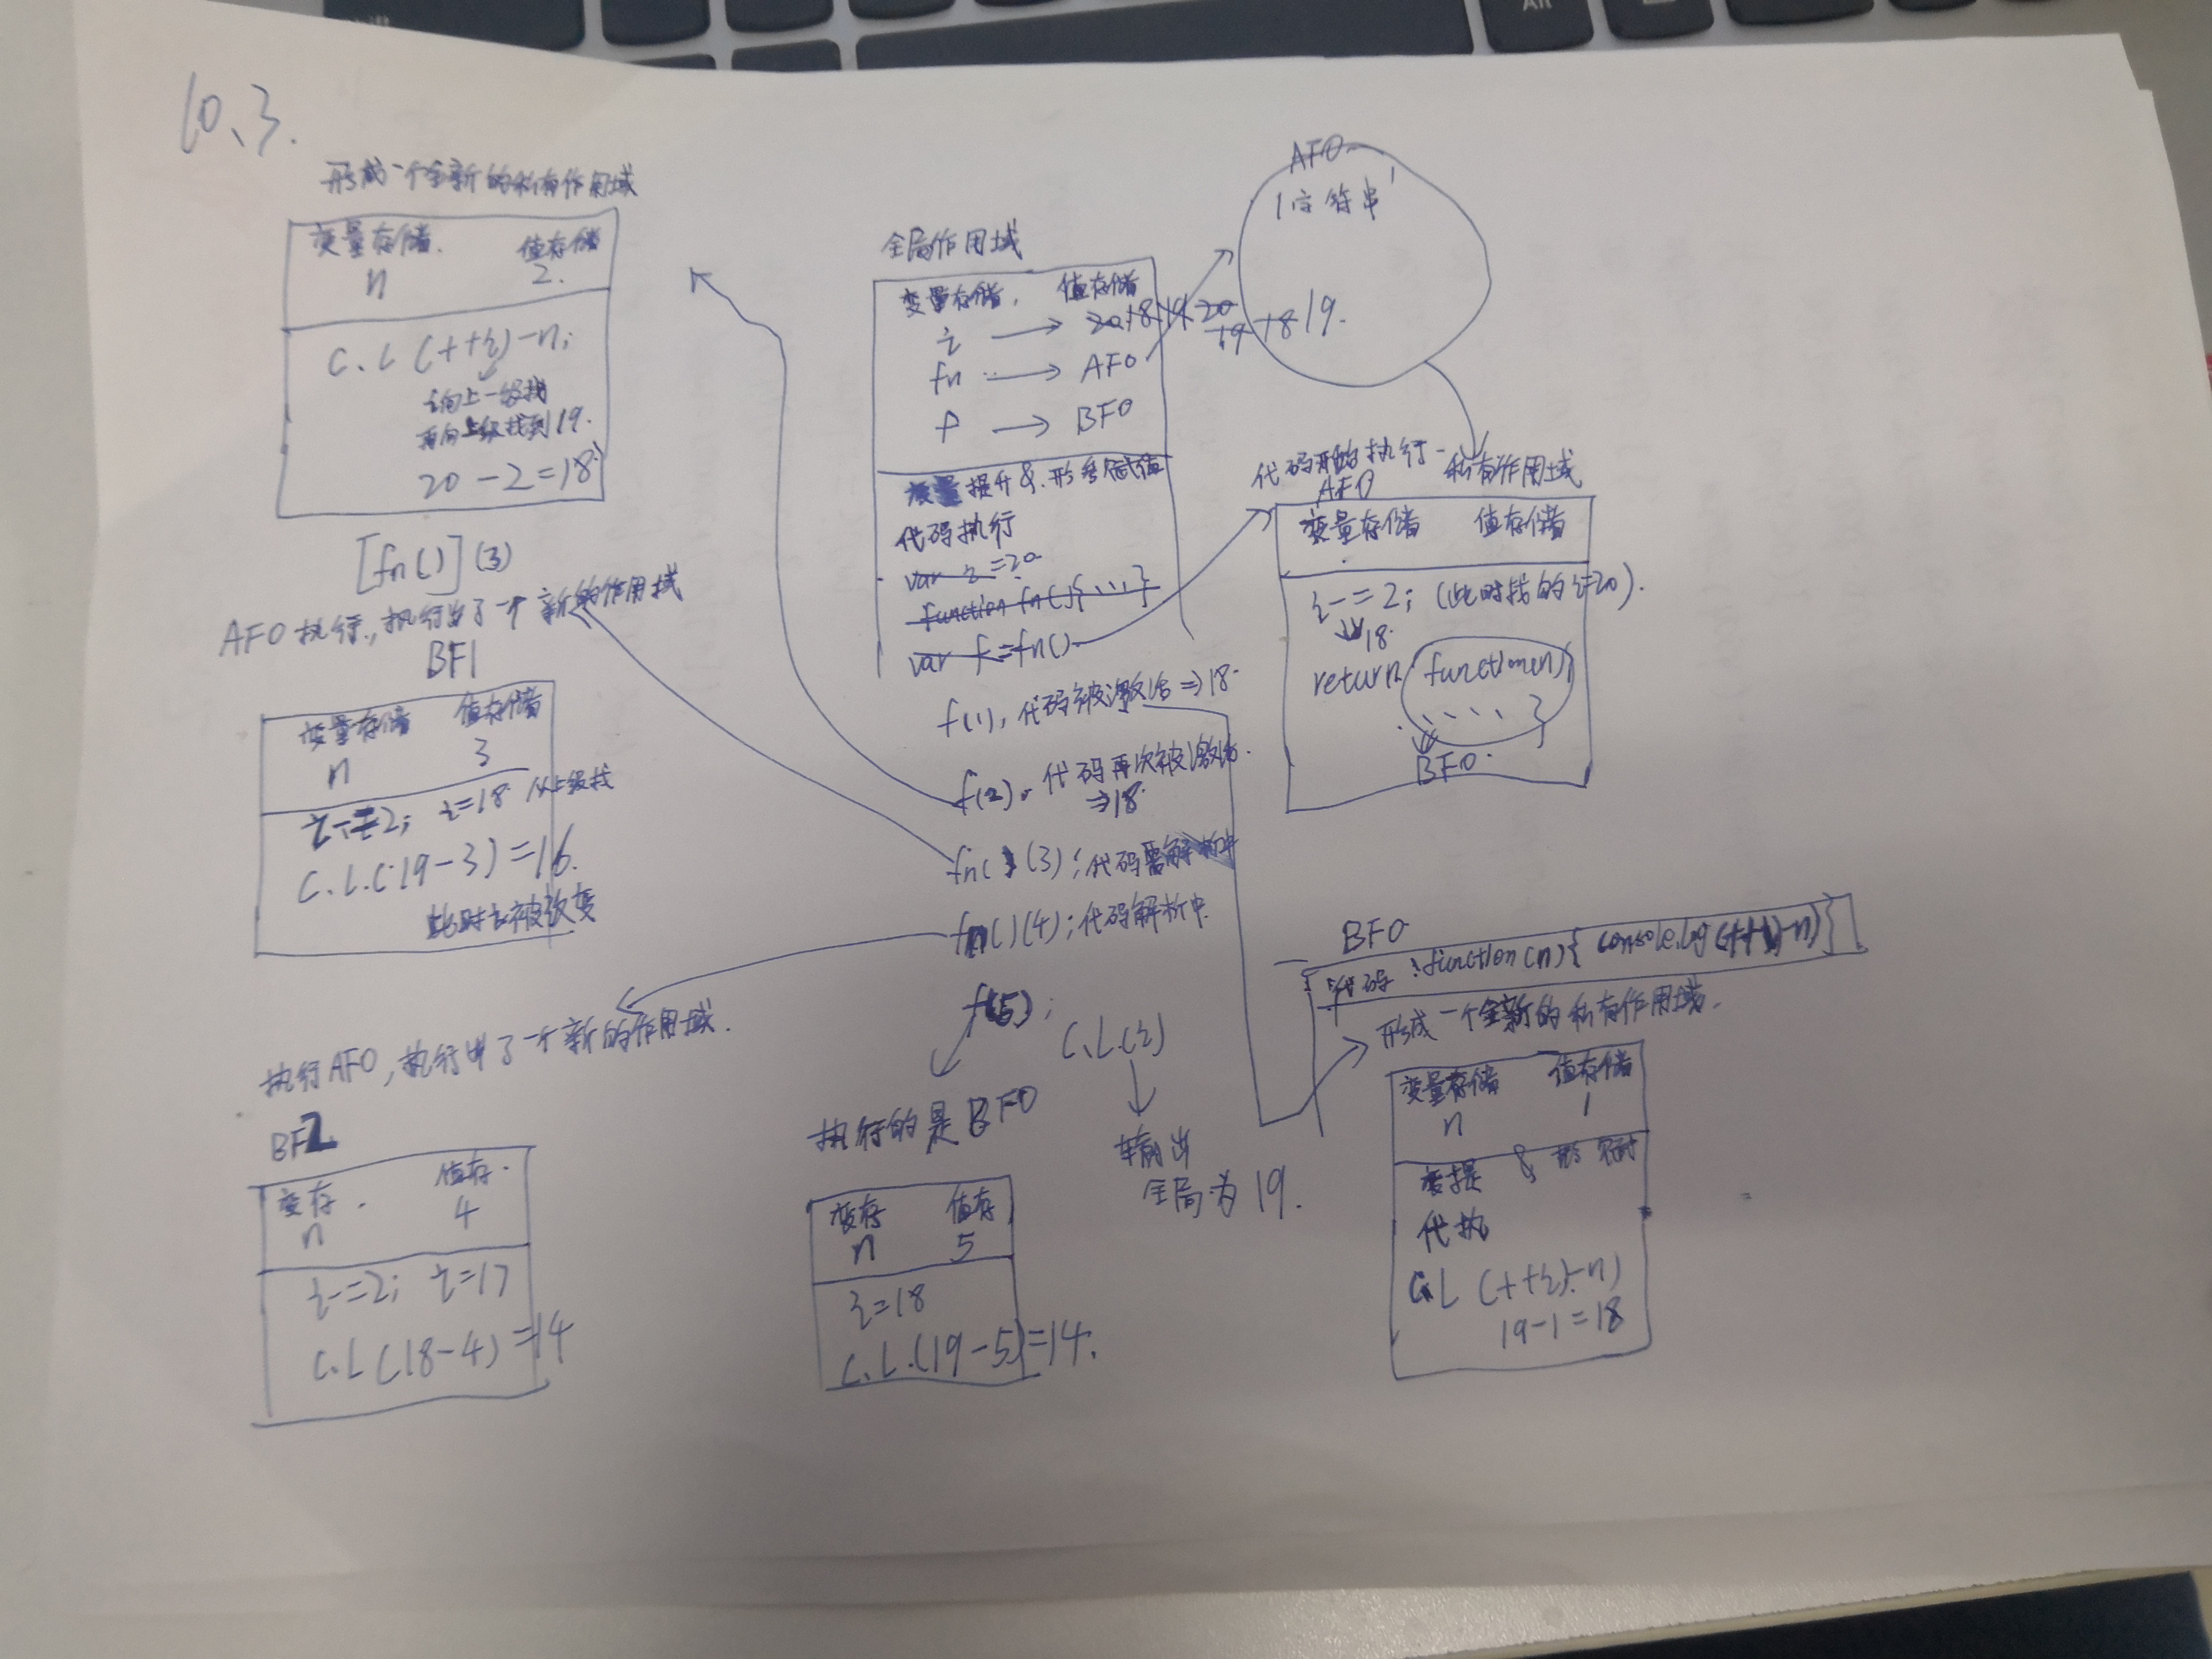 10、3.
形成一个全新的私有作用域
变量存储. 值存储
n 2.
C.L (++i)-n;
i向上一级找
再向上级找到19.
20-2=18
[fn()](3)
AFO执行,执行出了一个新的作用域
BF1
变量存储 值存储
n 3
i-=2; i=18 从上级找
C.L.(19-3)=16.
此时i被改变
执行AFO,执行出了一个新的作用域.
BF2
变存. 值存.
n 4
i-=2; i=17
C.L(18-4)=14
全局作用域
变量存储. 值存储
i → 20 18 19 20
19 18 19.
fn → AFO
f → BFO
变量提升&形参赋值
代码执行
var i=20
function fn(){....}
var f=fn()
f(1), 代码被激活⇒18.
f(2). 代码再次被激活.
⇒18.
fn()(3);代码需解析中
fn()(4);代码解析中.
f(5);
C.L.(i)
输出
全局为19.
执行的是BFO
变存 值存
n 5
i=18
C.L.(19-5)=14.
AFO
'字符串'
代码开始执行-私有作用域
AFO
变量存储 值存储
i-=2; (此时找的i=20).
18.
return function(n){
.... }
BFO.
BFO
代码:function(n){console.log(++i)-n)}
形成一个全新的私有作用域.
变量存储 值存储
n 1
变提 & 形
代执
C.L (++i)-n)
19-1=18